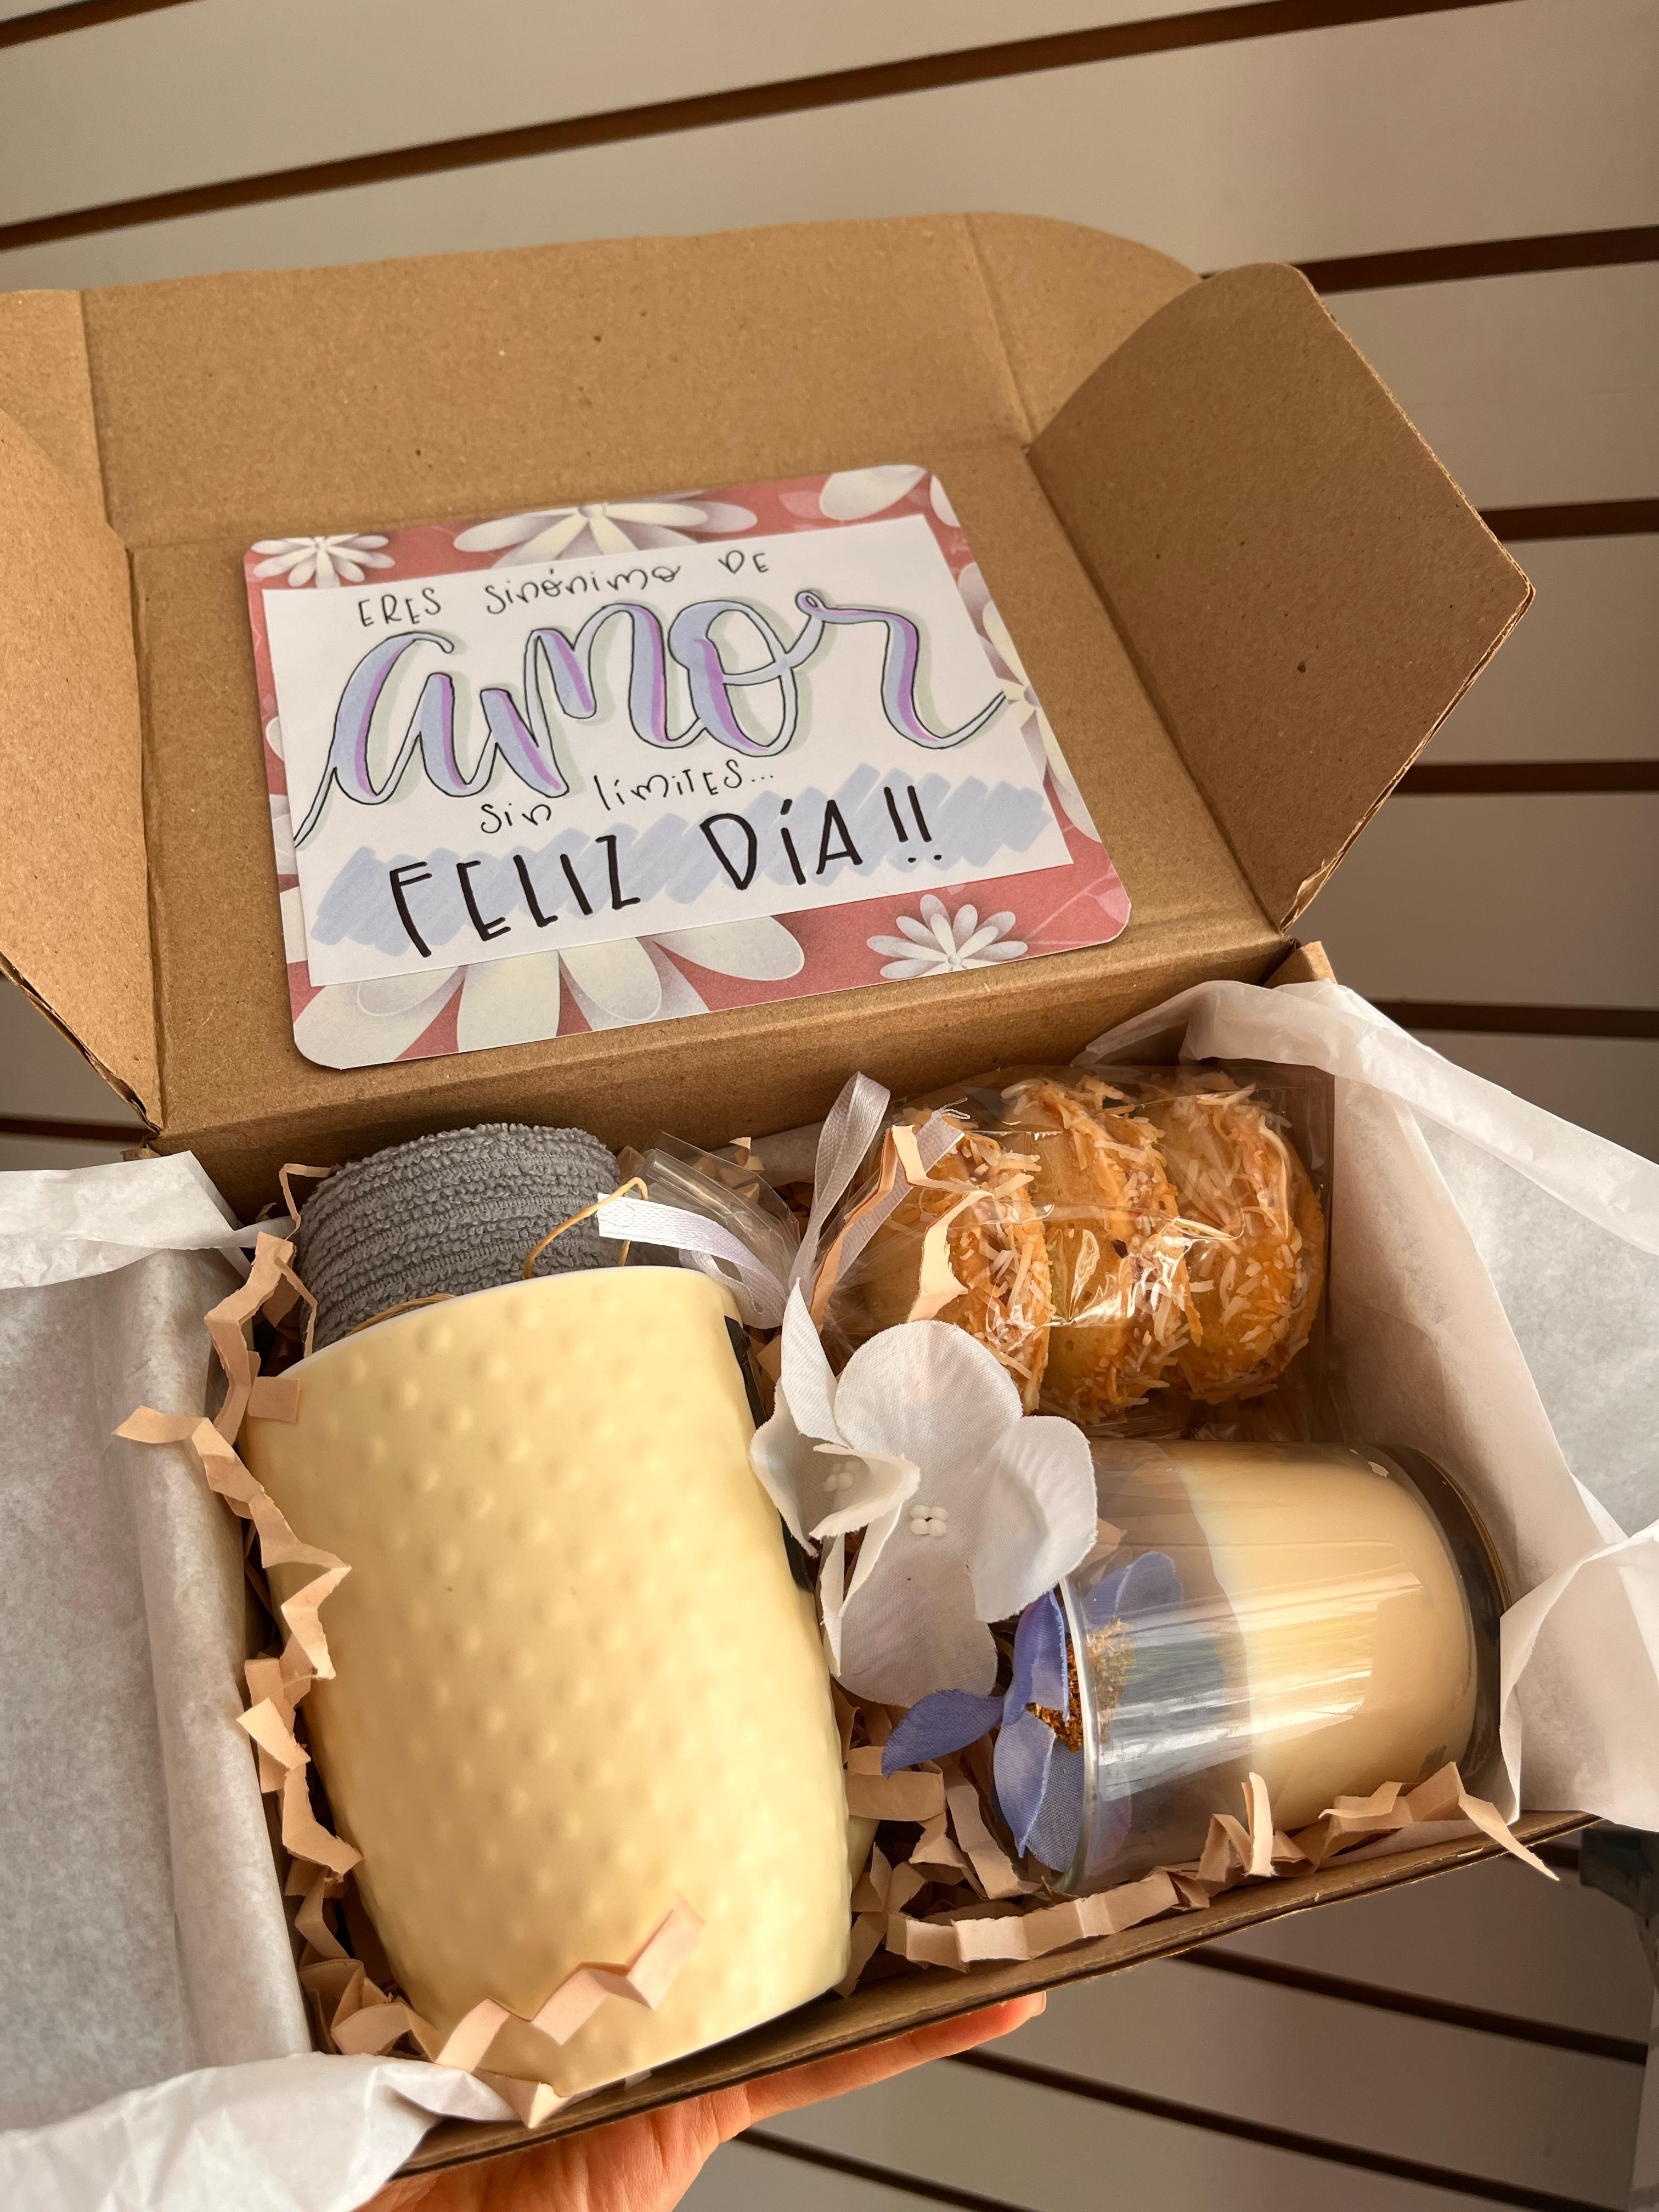 ERES sinónimo DE
amor
sin límiTES...
FELIZ DÍA!!